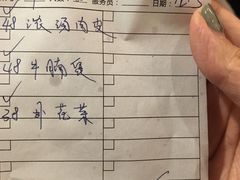 服务员: 日期:
48 浓汤肉皮
48 牛腩煲
38 花菜